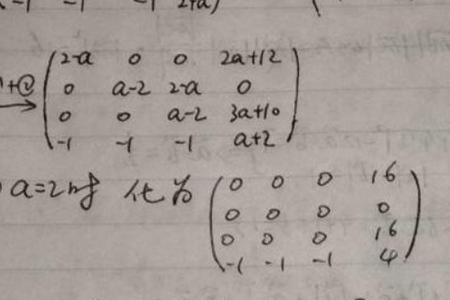 -1 -1 -1 2+a
+② → 2-a 0 0 2a+12
0 a-2 2-a 0
0 0 a-2 3a+10
-1 -1 -1 a+2
a=2时 化为 0 0 0 16
0 0 0 0
0 0 0 16
-1 -1 -1 4